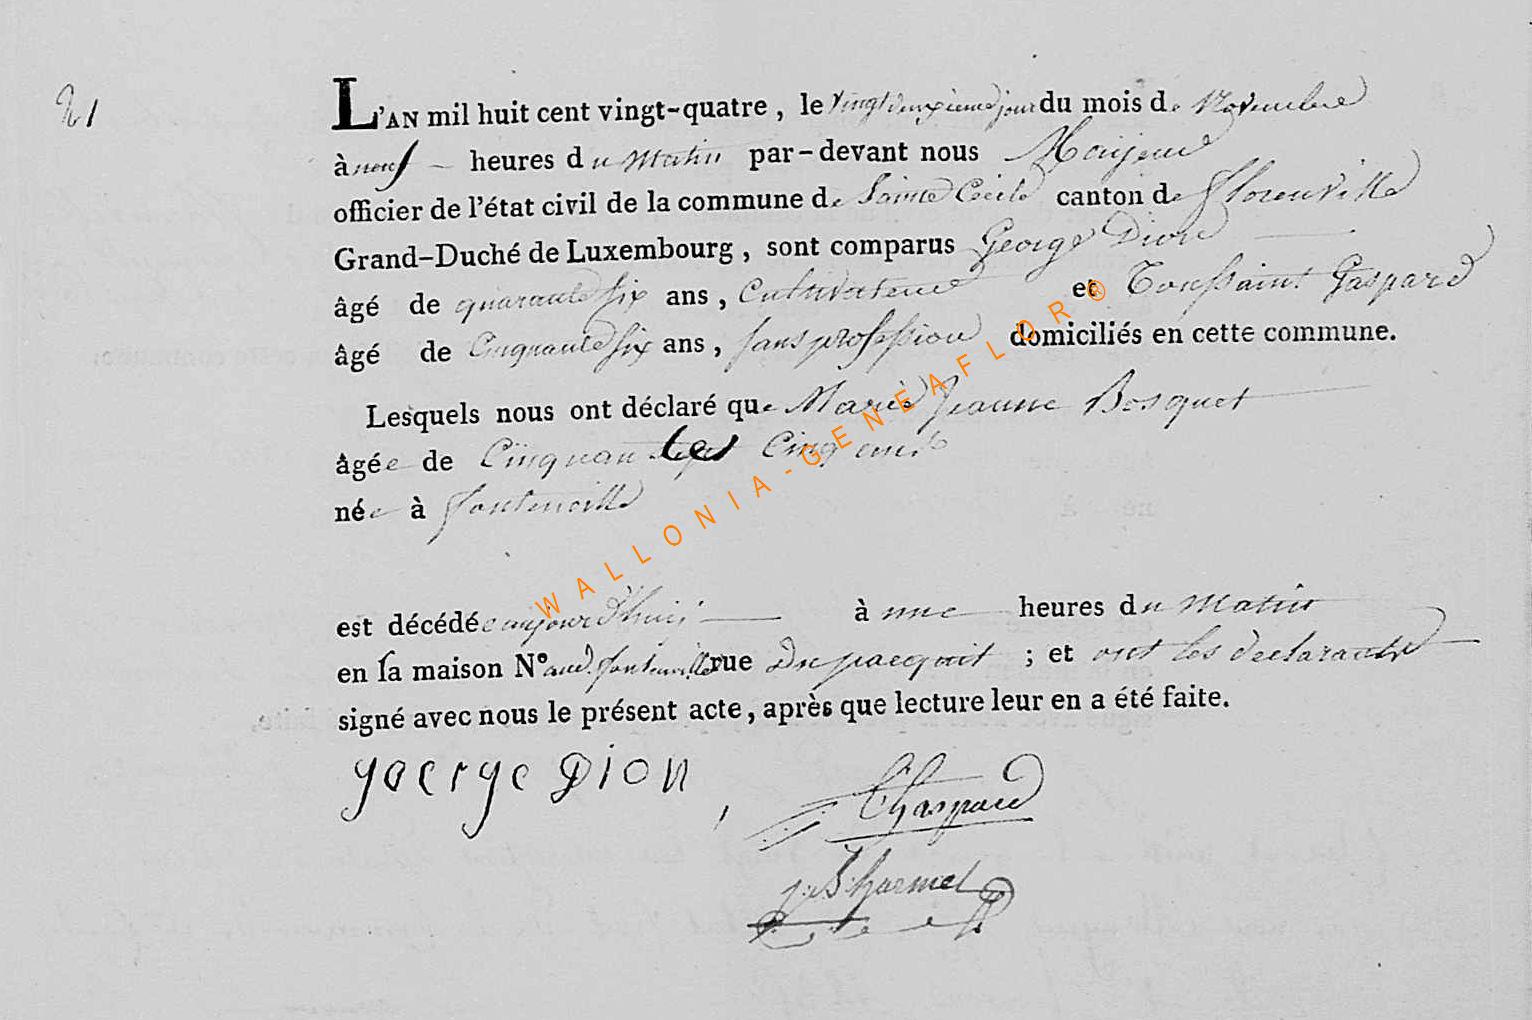 21
L'AN mil huit cent vingt-quatre, le vingt deuxieme jour du mois de Novembre
à neuf heures du Matin par-devant nous Maijeur
officier de l'état civil de la commune de Sainte Cecile canton de florenville
Grand-Duché de Luxembourg, sont comparus George Dion
âgé de quarante six ans, Cultivateur et Toussaint Gaspard
âgé de Cinquante six ans, sans profession domiciliés en cette commune.
Lesquels nous ont déclaré que Marie Jeanne Bosquet
âgée de Cinquante Cinq ans
née à fontenoille
est décédée aujourd'huij à une heures du Matin
en la maison N° aud. fontenoille rue Du ; et ont les declarants
signé avec nous le présent acte, après que lecture leur en a été faite.
george Dion
WALLONIA-GENEAFLOR®